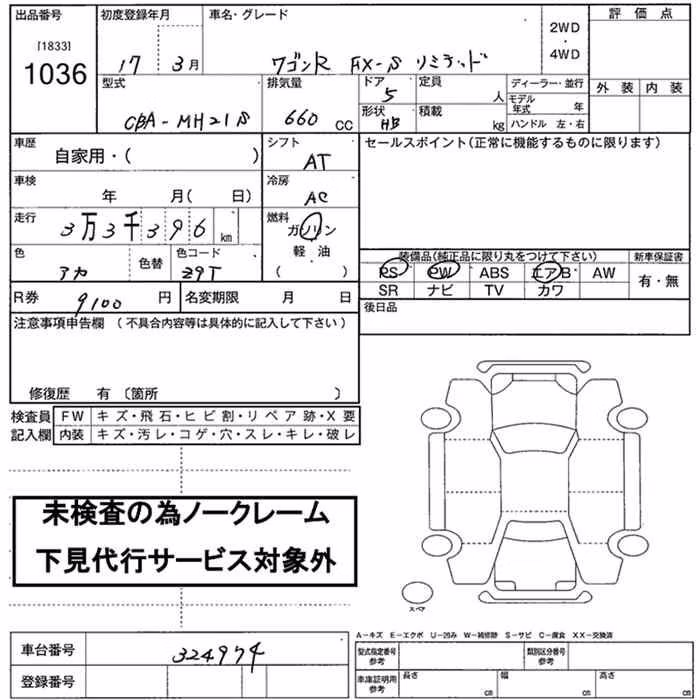 出品番号 [1833] 1036
初度登録年月 17 3月
車名・グレード ワゴンR FX-S リミテッド
2WD・4WD
評価点
外装 内装
型式 CBA-MH21S
排気量 660 CC
ドア 5
形状 HB
定員 人
積載 kg
ディーラー・並行
モデル年式 年
ハンドル 左・右
車歴 自家用・( )
シフト AT
セールスポイント(正常に機能するものに限ります)
車検 年 月( 日)
冷房 AC
走行 3万3千396 km
燃料 ガソリン
軽・油
( )
色 アカ 色替 色コード Z9T
装備品(純正品に限り丸をつけて下さい)
PS PW ABS エアB AW
SR ナビ TV カワ
新車保証書
有・無
R券 9100 円 名変期限 月 日
後日品
注意事項申告欄 (不具合内容等は具体的に記入して下さい)
修復歴 有 〔箇所 〕
検査員 FW キズ・飛石・ヒビ割・リペア跡・X要
記入欄 内装 キズ・汚レ・コゲ・穴・スレ・キレ・破レ
未検査の為ノークレーム
下見代行サービス対象外
スペア
A-キズ E-エクボ U-凹み W-補修跡 S-サビ C-腐食 XX-交換済
車台番号 324974
登録番号
型式指定番号 参考 類別区分番号 参考
車庫証明用 参考 長さ cm 幅 cm 高さ cm